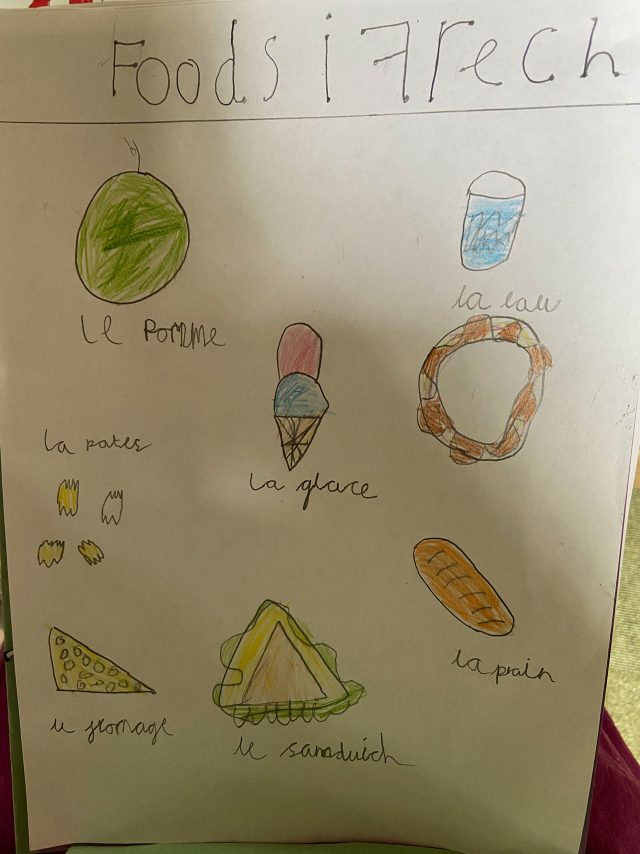 Foods i Frech
le Pomme
la eau
la pates
la glace
la pain
le fromage
le sandwich